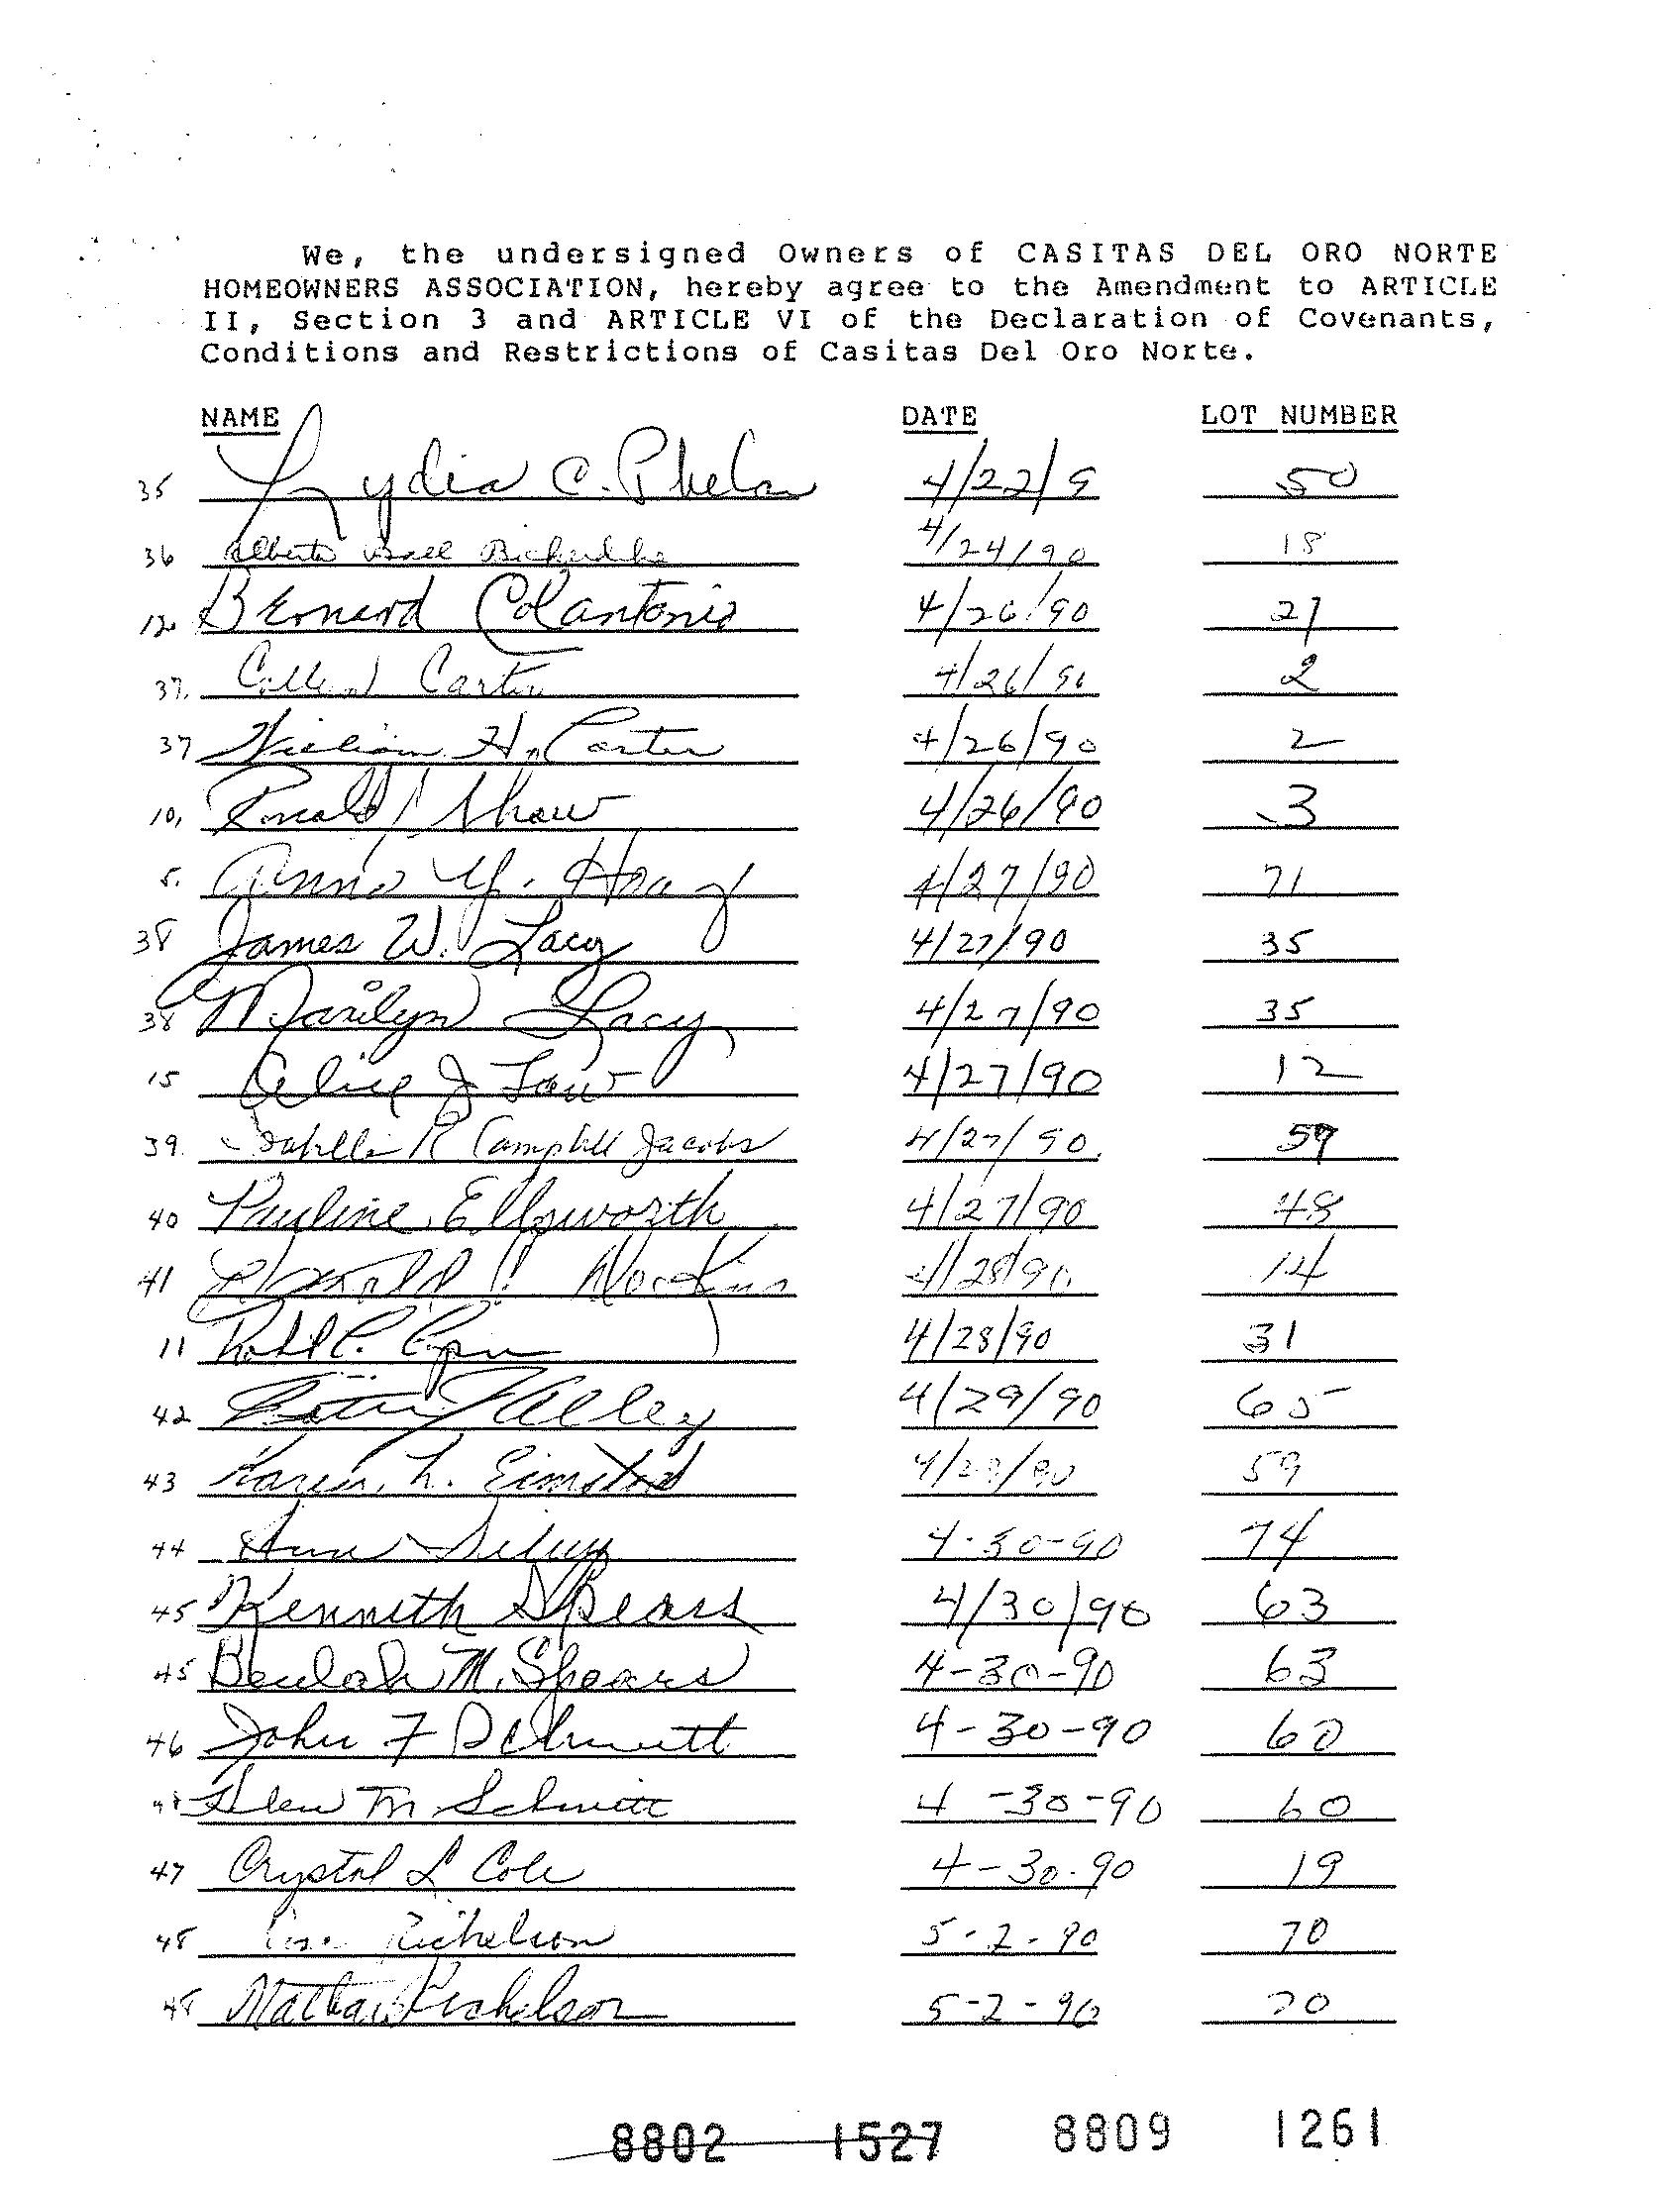 We, the undersigned Owners of CASITAS DEL ORO NORTE
HOMEOWNERS ASSOCIATION, hereby agree to the Amendment to ARTICLE
II, Section 3 and ARTICLE VI of the Declaration of Covenants,
Conditions and Restrictions of Casitas Del Oro Norte.
NAME DATE LOT NUMBER
35 Lydia C. Phelan 4/22/9 50
36 Alberta 4/24/90 18
12. Bernard Colantonio 4/26/90 27
37. Colleen Carter 4/26/90 2
37 William H. Carter 4/26/90 2
10, Ronald Shaw 4/26/90 3
5. Anna M. Hoag 4/27/90 71
38 James W. Lacy 4/27/90 35
38 Marilyn Lacy 4/27/90 35
15 Alice J Law 4/27/90 12
39. R Campbell Jacobs 4/27/90. 59
40 Pauline Ellsworth 4/27/90 48
41 4/28/90 14
11 4/28/90 31
42 Alley 4/29/90 65
43 Karen L. 4/29/90 59
44 4-30-90 74
45 Kenneth Spears 4/30/90 63
45 Beulah M. Spears 4-30-90 63
46 John F Schmitt 4-30-90 60
M Schmitt 4-30-90 60
47 Crystal L Cole 4-30-90 19
48 Richelson 5-2-90 70
48 Richelson 5-2-90 70
8802 1527 8809 1261